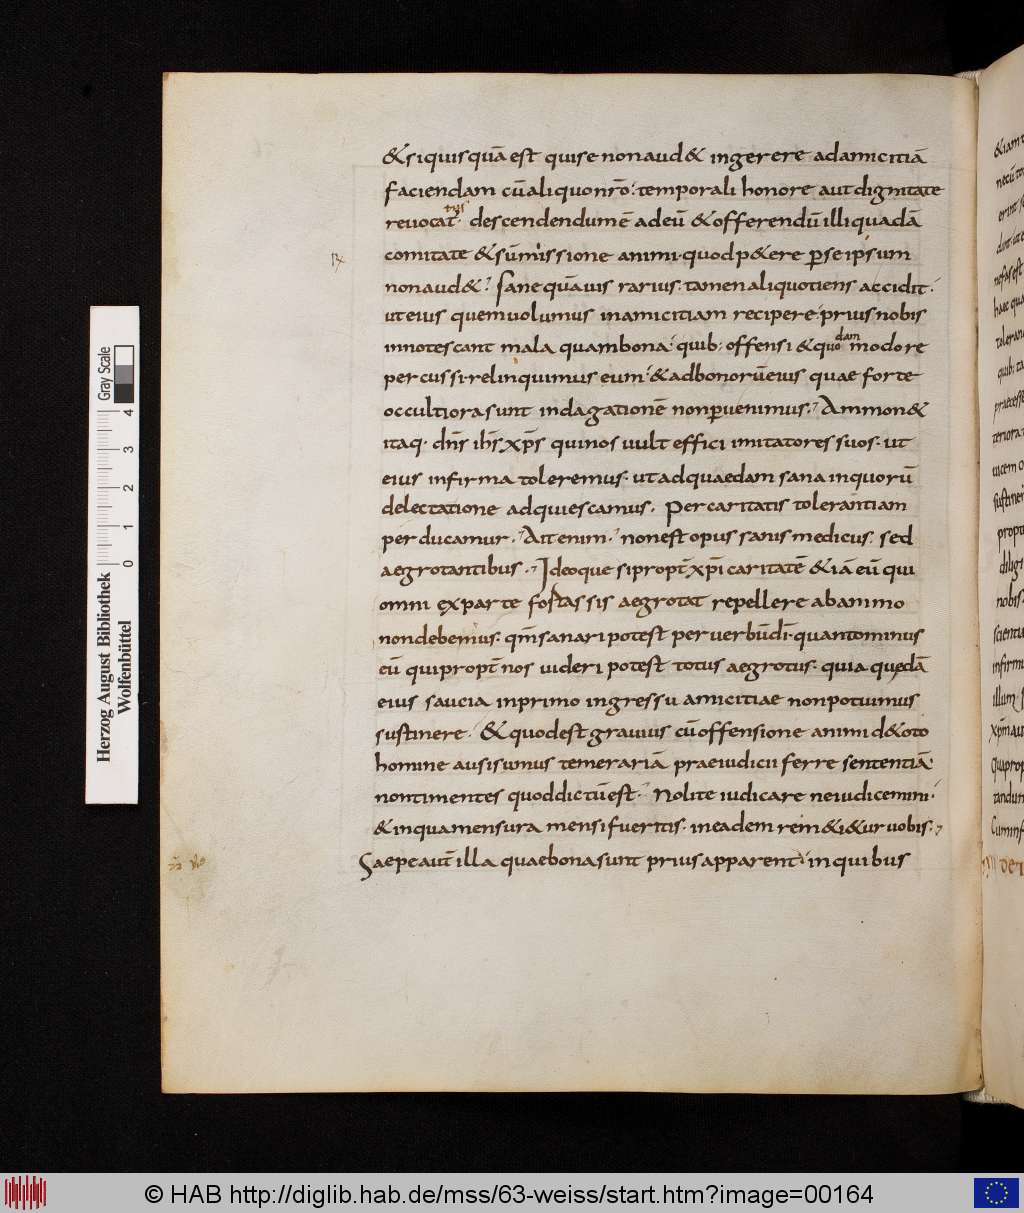 &siquisquā est quise nonaud& ingerere adamicitiā
faciendam cū aliquo nr̄o: temporali honore aut dignitate
reuocat̄· descendendum ē adeū & offerendū illi quadā
tus
comitate & sūmissione animi· quod p&ere p̄ se ipsum
nonaud&; Sane quāuis rarius· tamen aliquotiens accidit·
ut eius quem uolumus inamicitiam recipere· prius nobis
innotescant mala quam bona· quib; offensi & quodammodo re
percussi· relinquimus eum· & adbonorū eius quae forte
occultiora sunt indagationē nonp̄uenimus; Ammon&
itaq· dn̄s ih̄s xp̄s qui nos uult effici imitatores suos· ut
eius infirma toleremus· ut ad quaedam sana in quorū
delectatione adquiescamus· Per caritatis tolerantiam
perducamur; Ait enim; non est opus sanis medicus· sed
aegrotantibus; Ideoque si propt̄ xp̄i caritatē &iā eū qui
omni ex parte fortassis aegrotat repellere ab animo
non debemus· qm̄ sanari potest per uerbū dī· quanto minus
eū qui propt̄ nos uideri potest totus aegrotus· quia quędā
eius saucia in primo ingressu amicitiae non potuimus
sustinere· & quod est grauius cū offensione animi d& oto
homine ausi sumus temerariā praeiudicii ferre sententiā·
non timentes quod dictū est; Nolite iudicare ne iudicemini·
& in qua mensura mensi fueritis· in eadem rem&i&ur uobis;
Saepe aut̄ illa quae bona sunt prius apparent· in quibus
Herzog August Bibliothek
Wolfenbüttel
0 1 2 3 4
Gray Scale
© HAB http://diglib.hab.de/mss/63-weiss/start.htm?image=00164